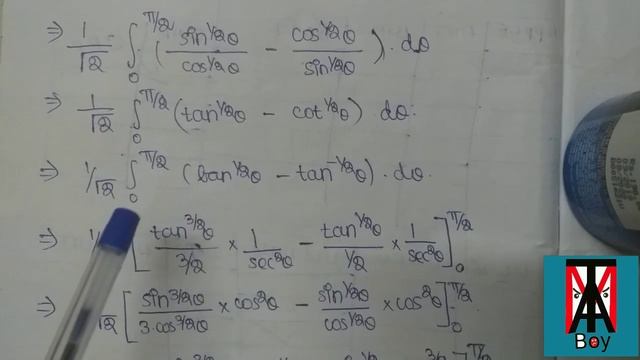 ⇒ 1/√2 ∫₀^π/2 (sin^1/2θ / cos^1/2θ − cos^1/2θ / sin^1/2θ) . dθ
⇒ 1/√2 ∫₀^π/2 (tan^1/2θ − cot^1/2θ) dθ.
⇒ 1/√2 ∫₀^π/2 (tan^1/2θ − tan^-1/2θ) . dθ.
⇒ [tan^3/2θ / 3/2 × 1/sec²θ − tan^1/2θ / 1/2 × 1/sec²θ]₀^π/2
⇒ √2 [sin^3/2θ / 3.cos^3/2θ × cos²θ − sin^1/2θ / cos^1/2θ × cos²θ]₀^π/2
Boy